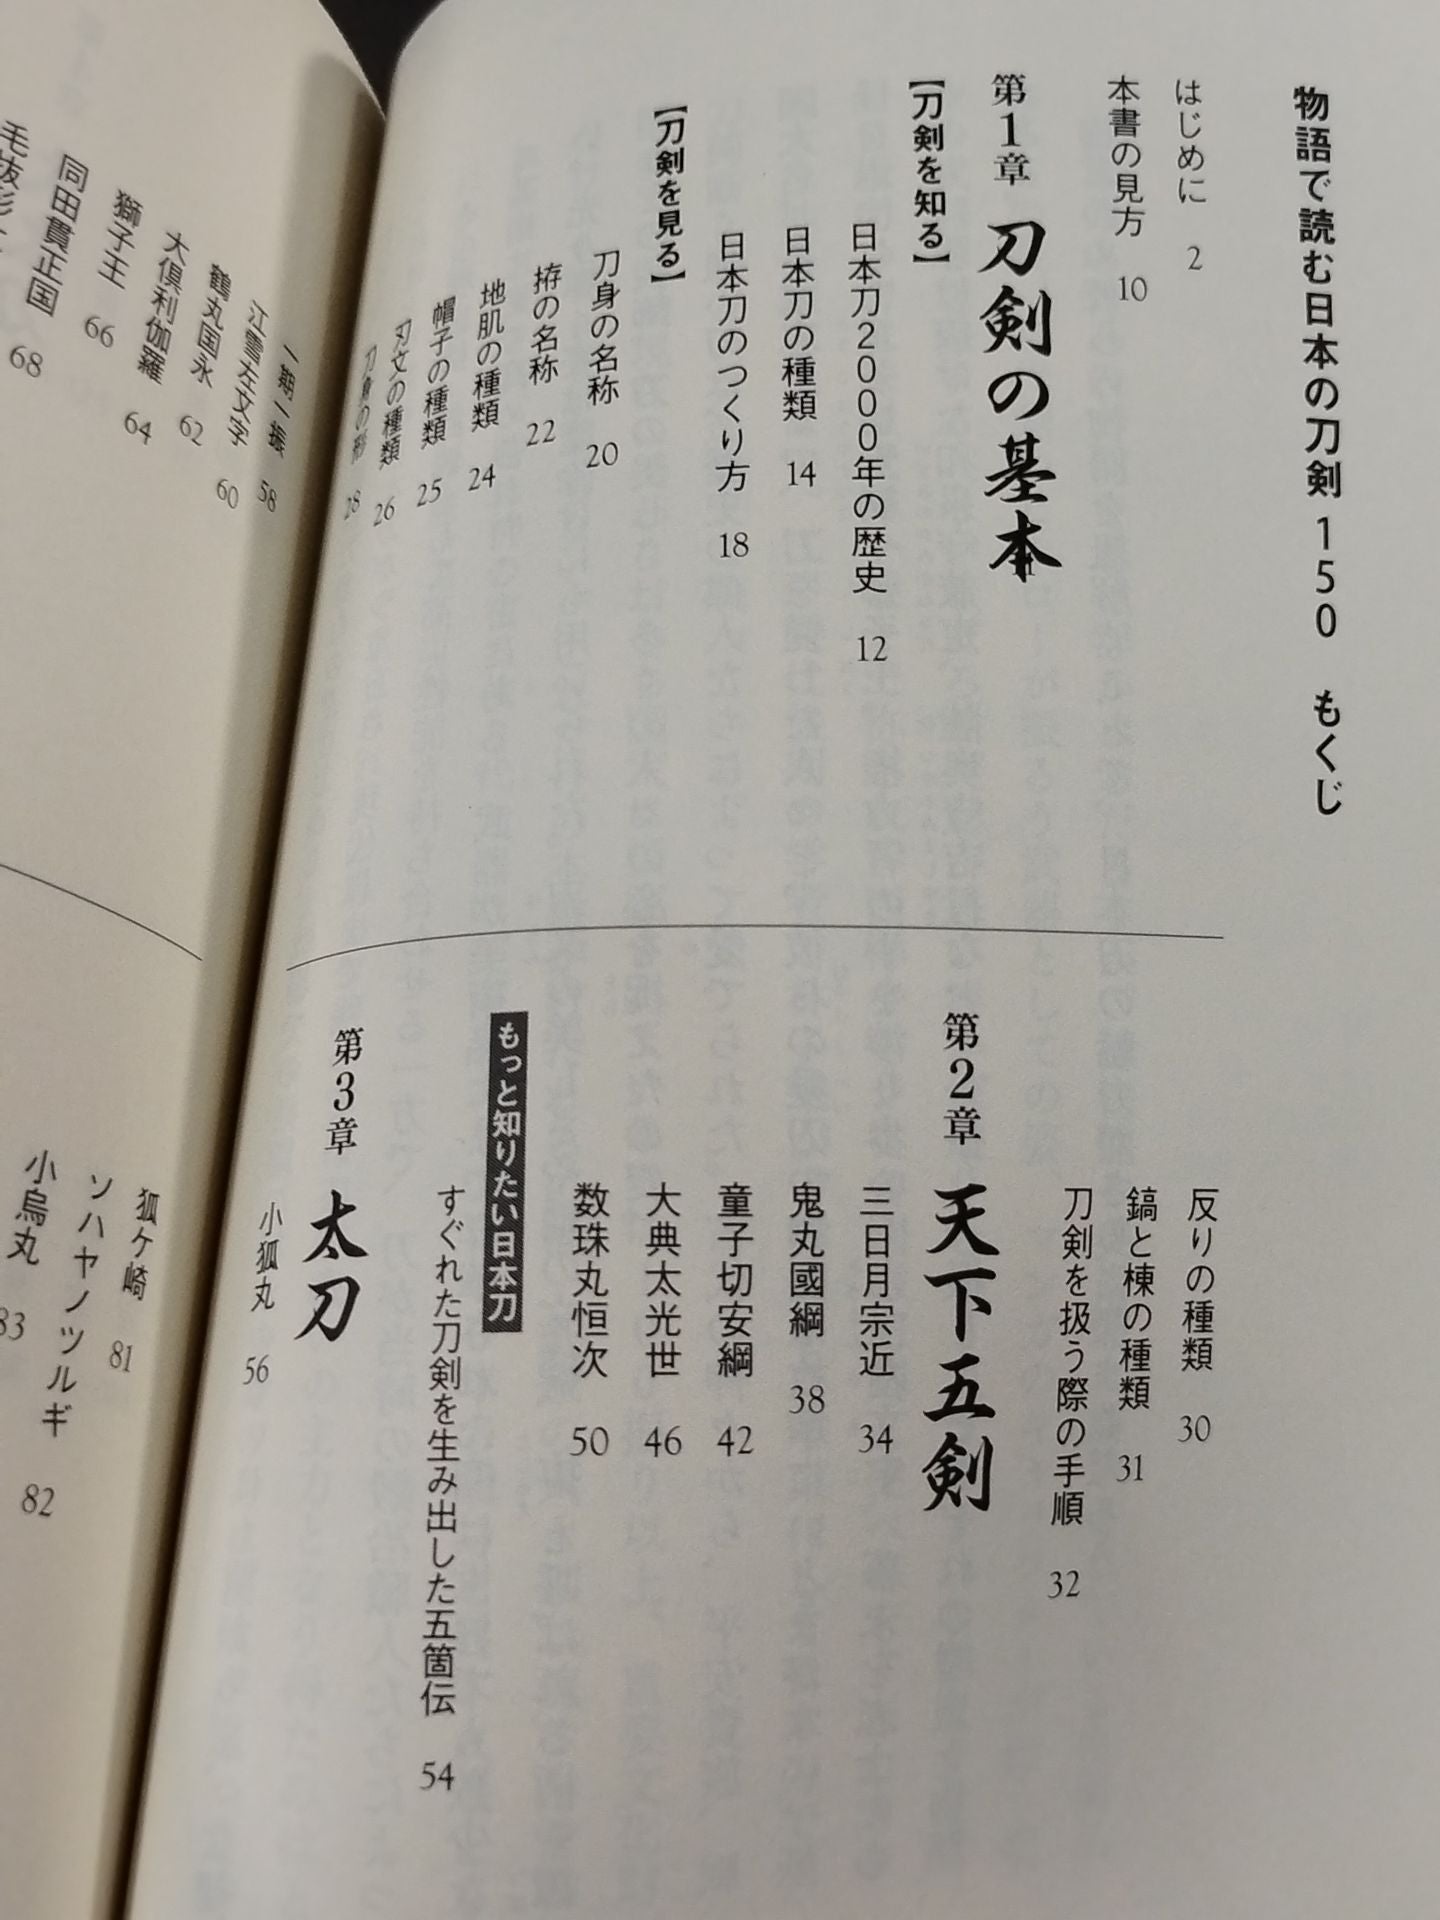 物語で読む日本の刀剣150 もくじ
はじめに 2
本書の見方 10
第1章 刀剣の基本
【刀剣を知る】
日本刀2000年の歴史 12
日本刀の種類 14
日本刀のつくり方 18
【刀剣を見る】
刀身の名称 20
拵の名称 22
地肌の種類 24
帽子の種類 25
刃文の種類 26
刀身の 28
反りの種類 30
鎬と棟の種類 31
刀剣を扱う際の手順 32
第2章 天下五剣
三日月宗近 34
鬼丸國綱 38
童子切安綱 42
大典太光世 46
数珠丸恒次 50
もっと知りたい日本刀
すぐれた刀剣を生み出した五箇伝 54
第3章 太刀
小狐丸 56
一期一振 58
江雪左文字 60
鶴丸国永 62
大倶利伽羅 64
獅子王 66
同田貫正国 68
狐ケ崎 81
ソハヤノツルギ 82
小烏丸 83